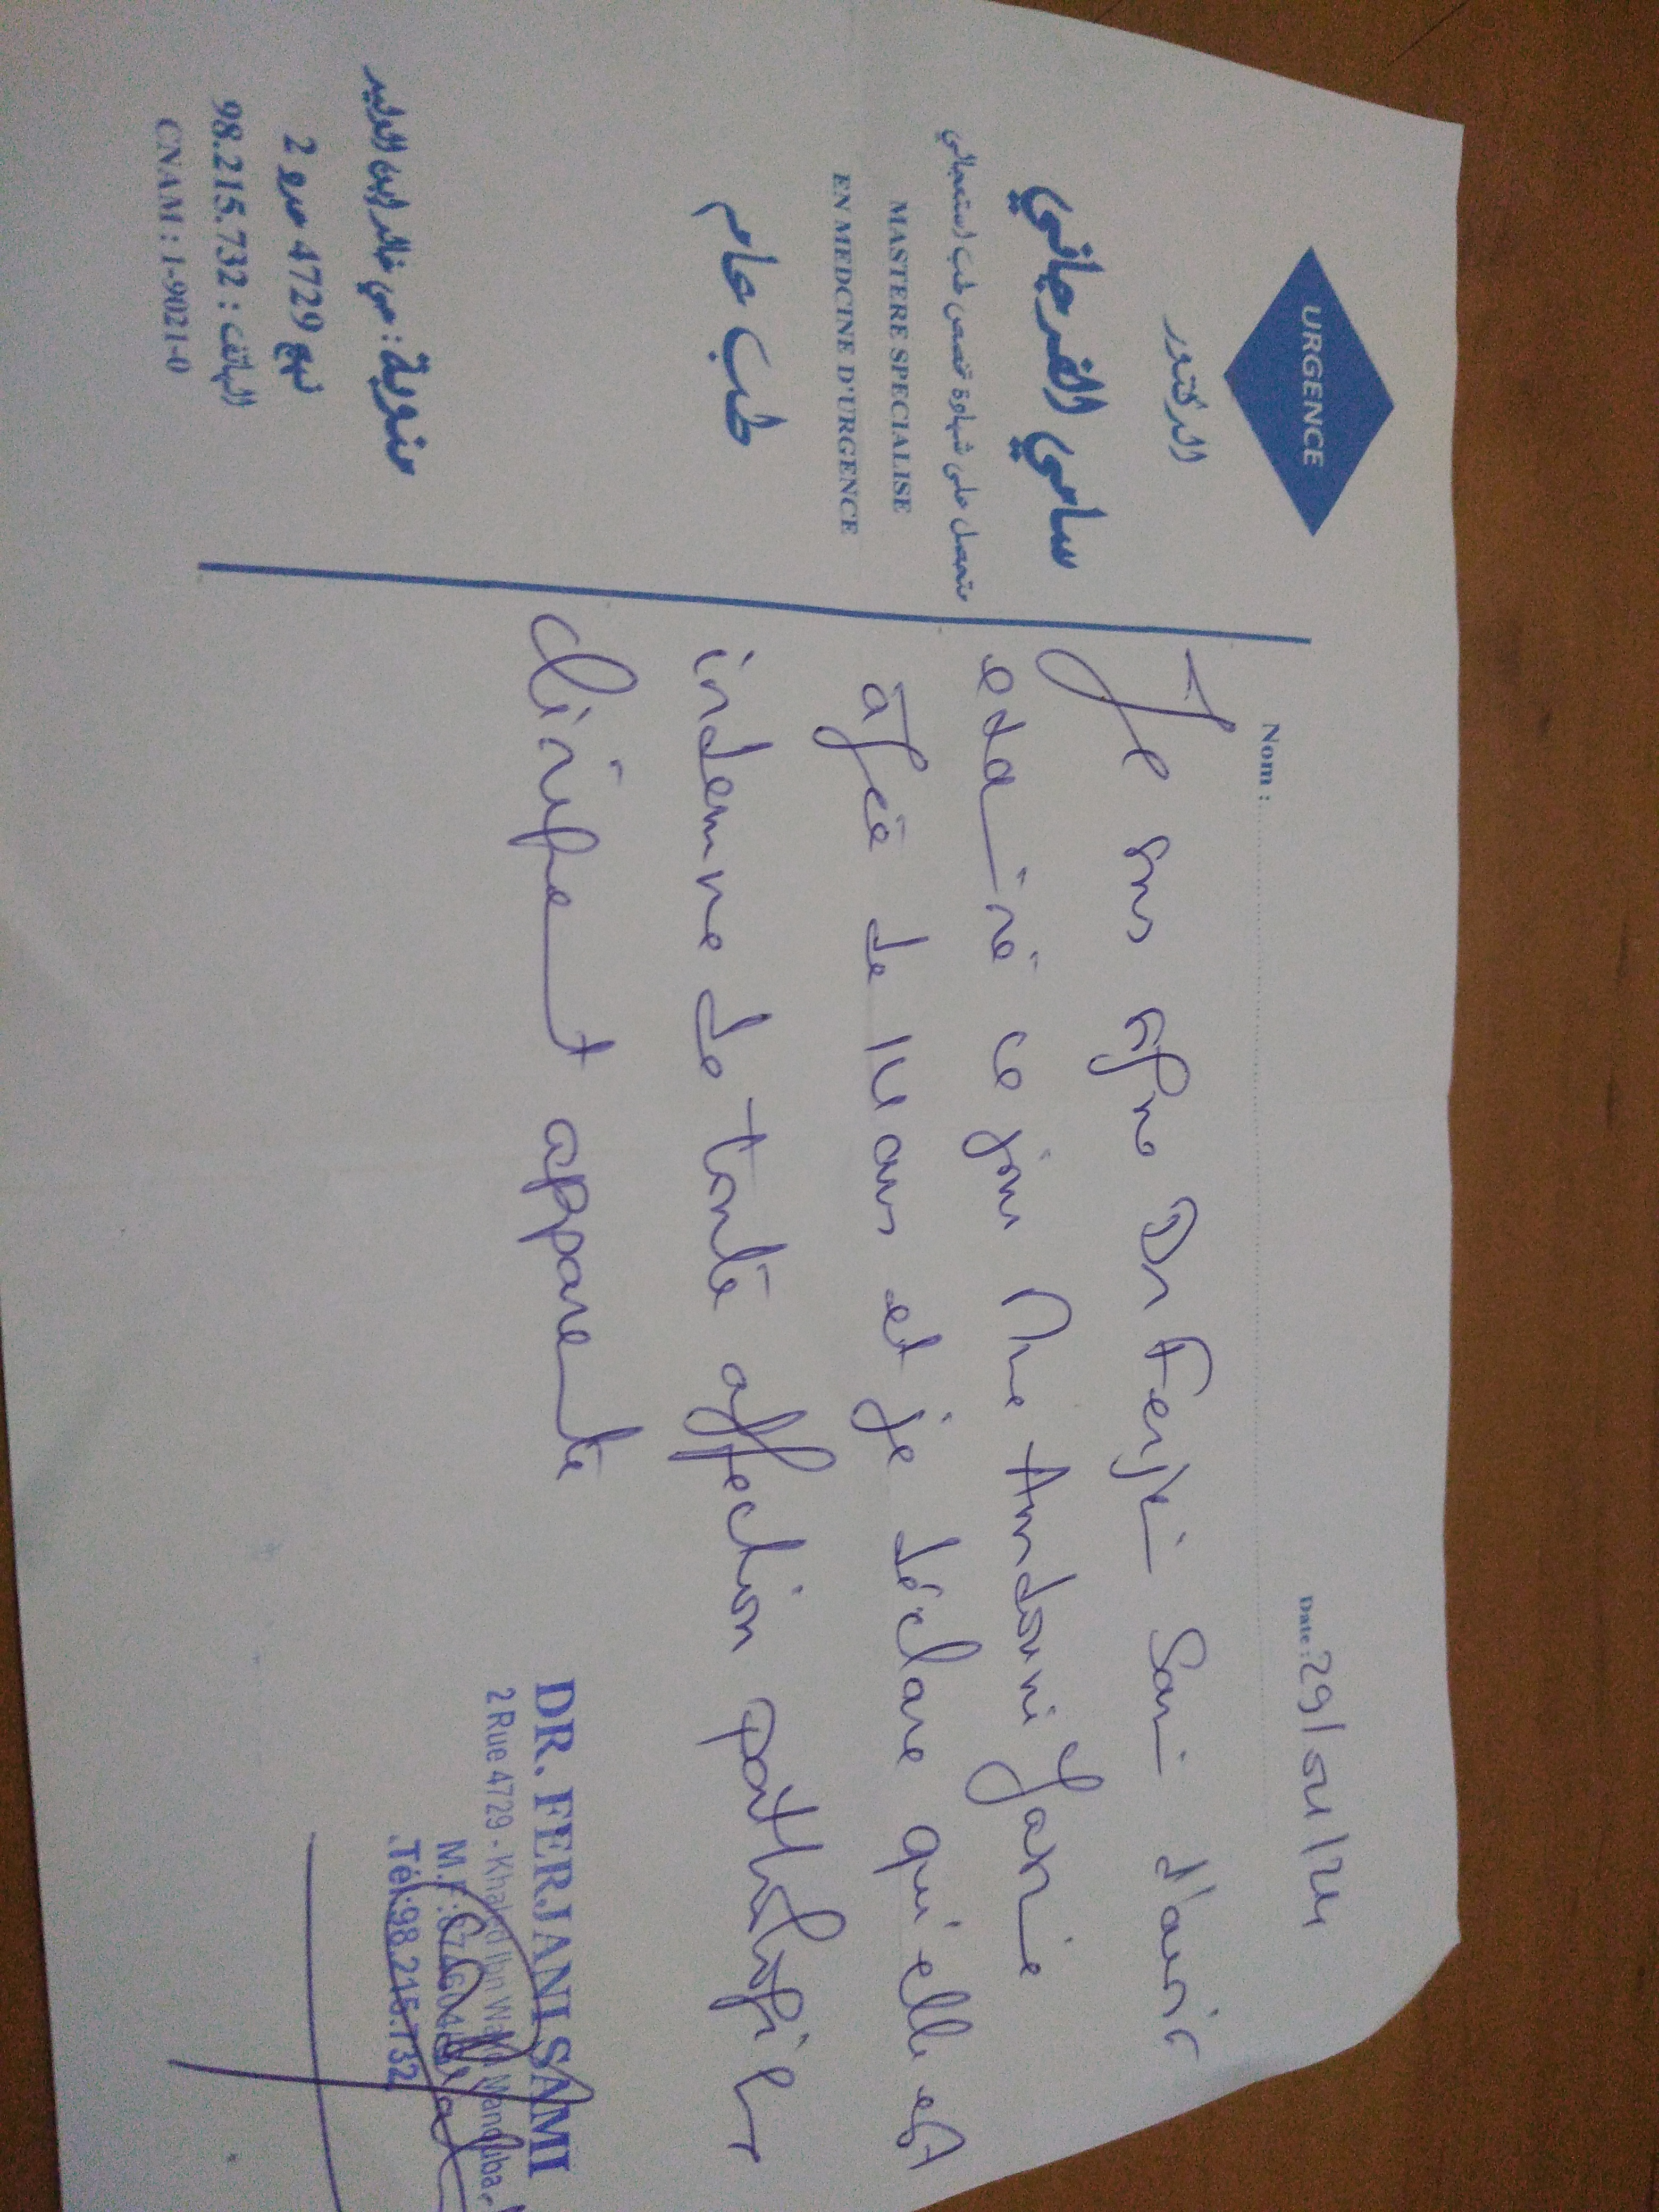 URGENCE
الدكتور
سامي الفرجاني
متحصل على شهادة تخصص طب استعجالي
MASTERE SPECIALISE
EN MEDCINE D'URGENCE
طب عام
منوبة : حي خالد ابن الوليد
نهج 4729 عدد 2
الهاتف : 98.215.732
CNAM : 1-9021-0
Date :
Nom :
Je sous signé Dr Ferjani Sami d'avoir
examiné ce jour Mme Hamdouni
âgée de ans et je déclare qu'elle est
indemne de toute affection pathologique
cliniquement apparente
DR. FERJANI SAMI
2 Rue 4729 - Khaled Ibn Walid Manouba
M.F
Tél:98.215.732